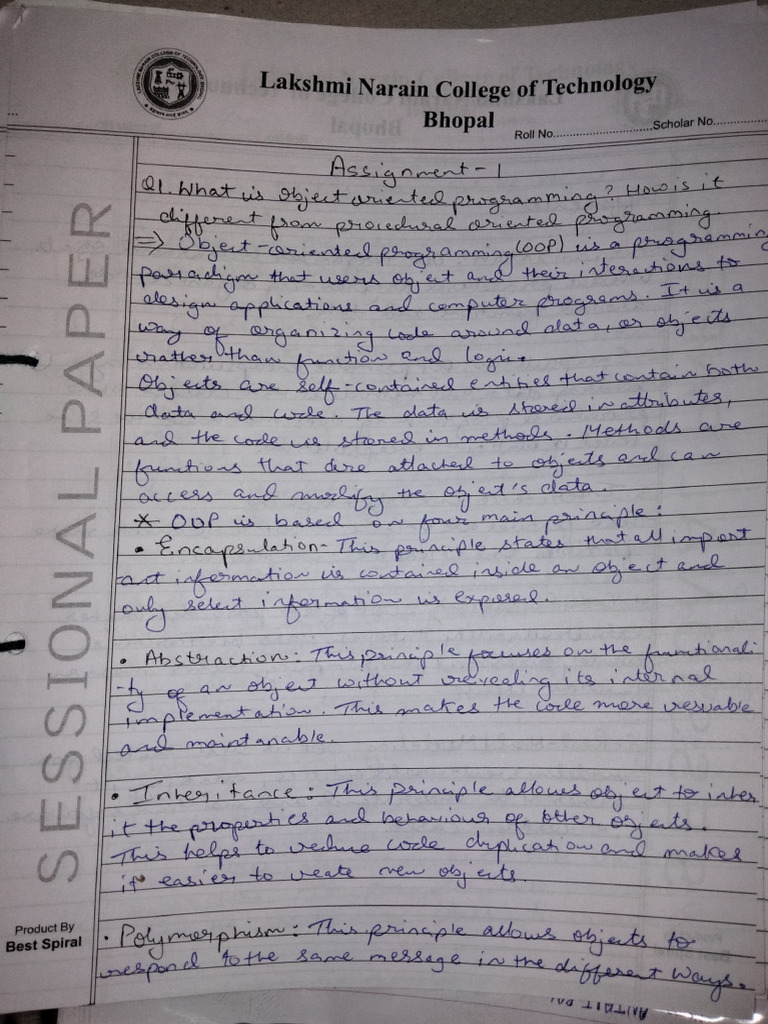 Lakshmi Narain College of Technology
Bhopal
Roll No..............................Scholar No...............
Assignment - 1
Q1. What is object oriented programming? How is it
different from procedural oriented programming.
=> Object-oriented programming (OOP) is a programming
paradigm that users object and their interactions to
design applications and computer programs. It is a
way of organizing code around data, or objects
rather than function and logic.
Objects are self-contained entities that contain both
data and code. The data is stored in attributes,
and the code is stored in methods. Methods are
functions that are attached to objects and can
access and modify the object's data.
* OOP is based on four main principle:
• Encapsulation- This principle states that all import
ant information is contained inside an object and
only select information is exposed.
• Abstraction: This principle focuses on the functionali
-ty of an object without revealing its internal
implementation. This makes the code more resuable
and maintanable.
• Inheritance: This principle allows object to inher
it the properties and behaviour of other objects.
This helps to reduce code duplication and makes
it easier to create new objects.
• Polymorphism: This principle allows objects to
respond to the same message in the different ways.
SESSIONAL PAPER
Product By
Best Spiral